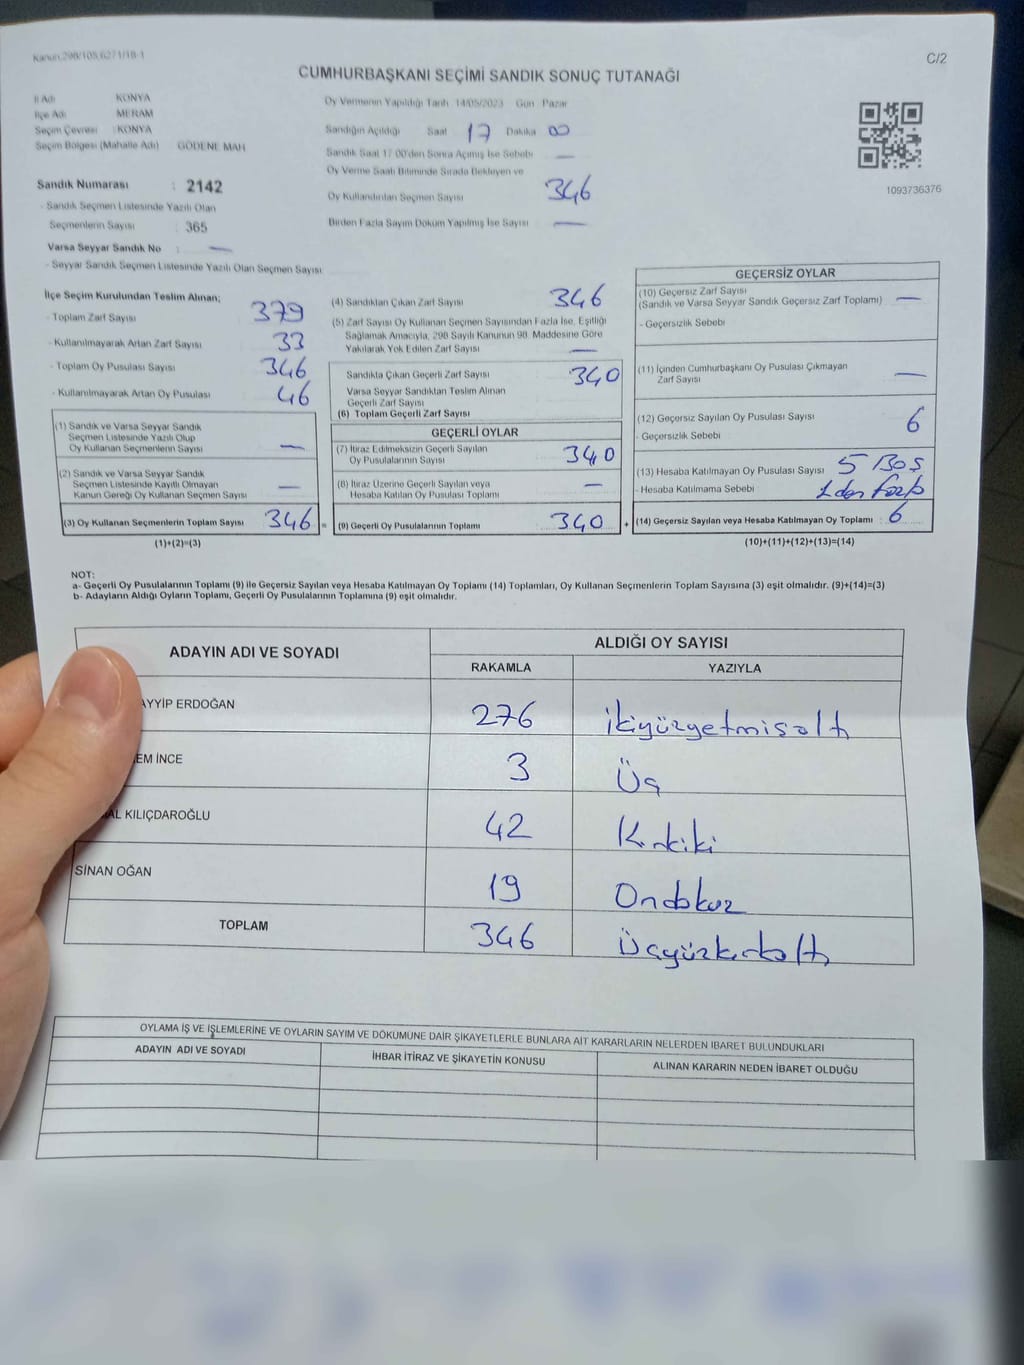 Kanun:298/105,6271/18-1
C/2
CUMHURBAŞKANI SEÇİMİ SANDIK SONUÇ TUTANAĞI
İl Adı KONYA
İlçe Adı MERAM
Seçim Çevresi : KONYA
Seçim Bölgesi (Mahalle Adı) GÖDENE MAH
Sandık Numarası : 2142
- Sandık Seçmen Listesinde Yazılı Olan
Seçmenlerin Sayısı : 365
Varsa Seyyar Sandık No : —
- Seyyar Sandık Seçmen Listesinde Yazılı Olan Seçmen Sayısı:
Oy Vermenin Yapıldığı Tarih 14/05/2023 Gün Pazar
Sandığın Açıldığı Saat 17 Dakika 00
Sandık Saat 17:00'den Sonra Açılmış İse Sebebi —
Oy Verme Saati Bitiminde Sırada Bekleyen ve
Oy Kullandırılan Seçmen Sayısı 346
Birden Fazla Sayım Döküm Yapılmış İse Sayısı —
1093736376
İlçe Seçim Kurulundan Teslim Alınan;
- Toplam Zarf Sayısı 379
- Kullanılmayarak Artan Zarf Sayısı 33
- Toplam Oy Pusulası Sayısı 346
- Kullanılmayarak Artan Oy Pusulası 46
(1) Sandık ve Varsa Seyyar Sandık
Seçmen Listesinde Yazılı Olup
Oy Kullanan Seçmenlerin Sayısı —
(2) Sandık ve Varsa Seyyar Sandık
Seçmen Listesinde Kayıtlı Olmayan
Kanun Gereği Oy Kullanan Seçmen Sayısı —
(3) Oy Kullanan Seçmenlerin Toplam Sayısı 346 =
(1)+(2)=(3)
(4) Sandıktan Çıkan Zarf Sayısı 346
(5) Zarf Sayısı Oy Kullanan Seçmen Sayısından Fazla İse, Eşitliği
Sağlamak Amacıyla, 298 Sayılı Kanunun 98. Maddesine Göre
Yakılarak Yok Edilen Zarf Sayısı —
Sandıkta Çıkan Geçerli Zarf Sayısı 340
Varsa Seyyar Sandıktan Teslim Alınan
Geçerli Zarf Sayısı
(6) Toplam Geçerli Zarf Sayısı
GEÇERLİ OYLAR
(7) İtiraz Edilmeksizin Geçerli Sayılan
Oy Pusulalarının Sayısı 340
(8) İtiraz Üzerine Geçerli Sayılan veya
Hesaba Katılan Oy Pusulası Toplamı —
(9) Geçerli Oy Pusulalarının Toplamı 340 +
GEÇERSİZ OYLAR
(10) Geçersiz Zarf Sayısı
(Sandık ve Varsa Seyyar Sandık Geçersiz Zarf Toplamı) —
- Geçersizlik Sebebi
(11) İçinden Cumhurbaşkanı Oy Pusulası Çıkmayan
Zarf Sayısı —
(12) Geçersiz Sayılan Oy Pusulası Sayısı 6
- Geçersizlik Sebebi
(13) Hesaba Katılmayan Oy Pusulası Sayısı 5 Boş
- Hesaba Katılmama Sebebi 1 den fazla
(14) Geçersiz Sayılan veya Hesaba Katılmayan Oy Toplamı : 6
(10)+(11)+(12)+(13)=(14)
NOT:
a- Geçerli Oy Pusulalarının Toplamı (9) ile Geçersiz Sayılan veya Hesaba Katılmayan Oy Toplamı (14) Toplamları, Oy Kullanan Seçmenlerin Toplam Sayısına (3) eşit olmalıdır. (9)+(14)=(3)
b- Adayların Aldığı Oyların Toplamı, Geçerli Oy Pusulalarının Toplamına (9) eşit olmalıdır.
ADAYIN ADI VE SOYADI ALDIĞI OY SAYISI
RAKAMLA YAZIYLA
AYYİP ERDOĞAN 276 ikiyüzyetmişaltı
EM İNCE 3 Üç
AL KILIÇDAROĞLU 42 Kırkiki
SİNAN OĞAN 19 Ondokuz
TOPLAM 346 Üçyüzkırkaltı
OYLAMA İŞ VE İŞLEMLERİNE VE OYLARIN SAYIM VE DÖKÜMÜNE DAİR ŞİKAYETLERLE BUNLARA AİT KARARLARIN NELERDEN İBARET BULUNDUKLARI
ADAYIN ADI VE SOYADI İHBAR İTİRAZ VE ŞİKAYETİN KONUSU ALINAN KARARIN NEDEN İBARET OLDUĞU